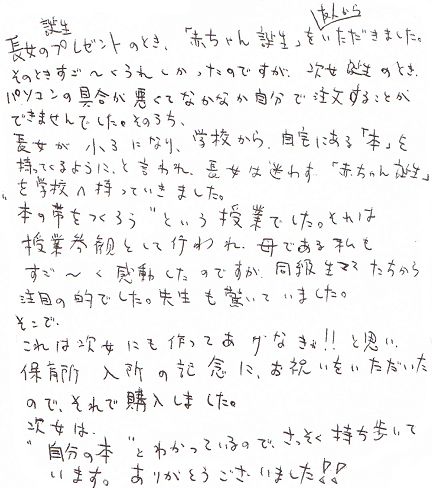 誕生 友人から
長女のプレゼントのとき、「赤ちゃん誕生」をいただきました。
そのときすご〜くうれしかったのですが、次女誕生のとき、
パソコンの具合が悪くてなかなか自分で注文することが
できませんでした。そのうち、
長女が小3になり、学校から、自宅にある「本」を
持ってくるように、と言われ、長女は迷わず「赤ちゃん誕生」
を学校へ持っていきました。
"本の帯をつくろう"という授業でした。それは
授業参観として行われ、母である私も
すご〜く感動したのですが、同級生ママたちから
注目の的でした。先生も驚いていました。
そこで、
これは次女にも作ってあげなきゃ!!と思い、
保育所入所の記念に、お祝いをいただいた
ので、それで購入しました。
次女は、
"自分の本"とわかっているので、さっそく持ち歩いて
います。ありがとうございました!!